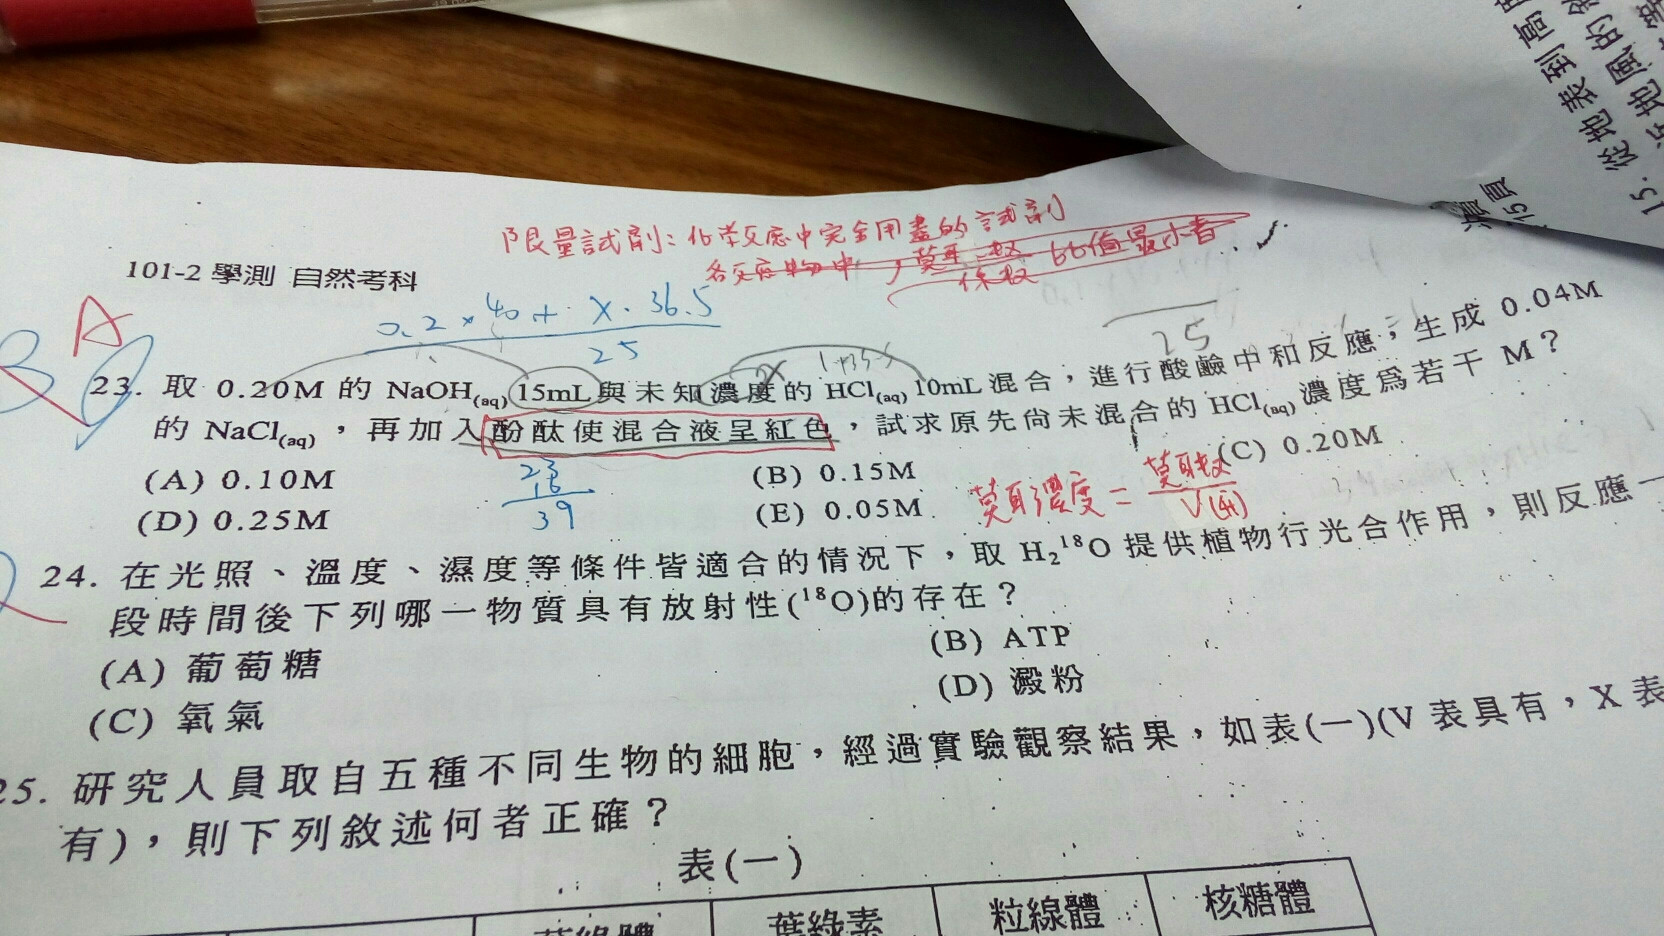 限量試劑：化學反應中完全用盡的試劑
各反應物中，莫耳數 比值最小者
係數
101-2 學測 自然考科
A
0.2 × 40 + X．36.5
25
25
23. 取 0.20M 的 NaOH(aq) 15mL 與未知濃度的 HCl(aq) 10mL 混合，進行酸鹼中和反應，生成 0.04M
的 NaCl(aq)，再加入酚酞使混合液呈紅色，試求原先尚未混合的 HCl(aq) 濃度為若干 M？
(A) 0.10M
(B) 0.15M
(C) 0.20M
(D) 0.25M
(E) 0.05M
23
16
39
莫耳濃度 = 莫耳數
V(升)
24. 在光照、溫度、濕度等條件皆適合的情況下，取 H₂¹⁸O 提供植物行光合作用，則反應一
段時間後下列哪一物質具有放射性(¹⁸O)的存在？
(A) 葡萄糖
(B) ATP
(C) 氧氣
(D) 澱粉
25. 研究人員取自五種不同生物的細胞，經過實驗觀察結果，如表(一)(V 表具有，X 表
有)，則下列敘述何者正確？
表(一)
葉綠素
粒線體
核糖體
15. 從地表到高